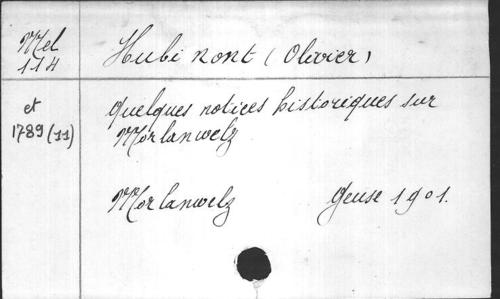 Mel
114
Hubinont (Olivier)
et
1789 (11)
Quelques notices historiques sur
Morlanwelz
Morlanwelz Geuse 1901.